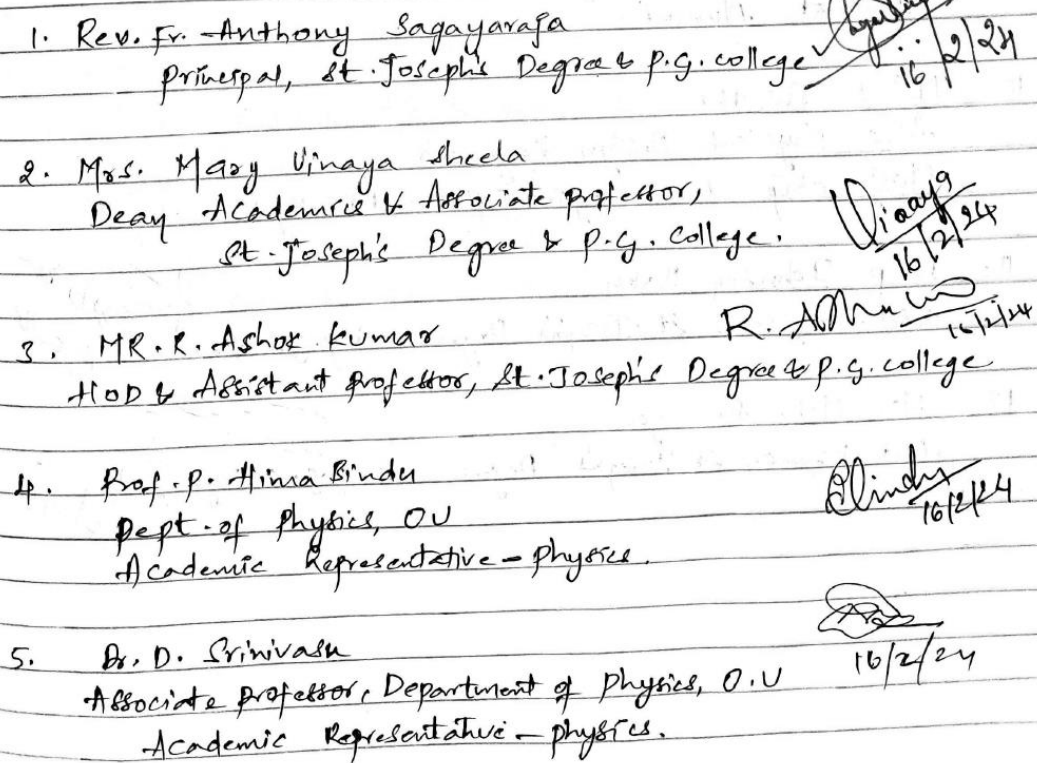 1. Rev. Fr. Anthony Sagayaraja
Principal, St. Joseph's Degree & P.G. college
16/2/24
2. Mrs. Mary Vinaya Sheela
Dean Academics & Associate professor,
St. Joseph's Degree & P.G. College.
Vinaya
16/2/24
3. MR. R. Ashok Kumar
R.
16/2/24
HOD & Assistant professor, St. Joseph's Degree & P.G. college
4. Prof. P. Hima Bindu
Bindu
16/2/24
Dept. of Physics, OU
Academic Representative - Physics.
5. Dr. D. Srinivasu
16/2/24
Associate professor, Department of Physics, O.U
Academic Representative - physics.